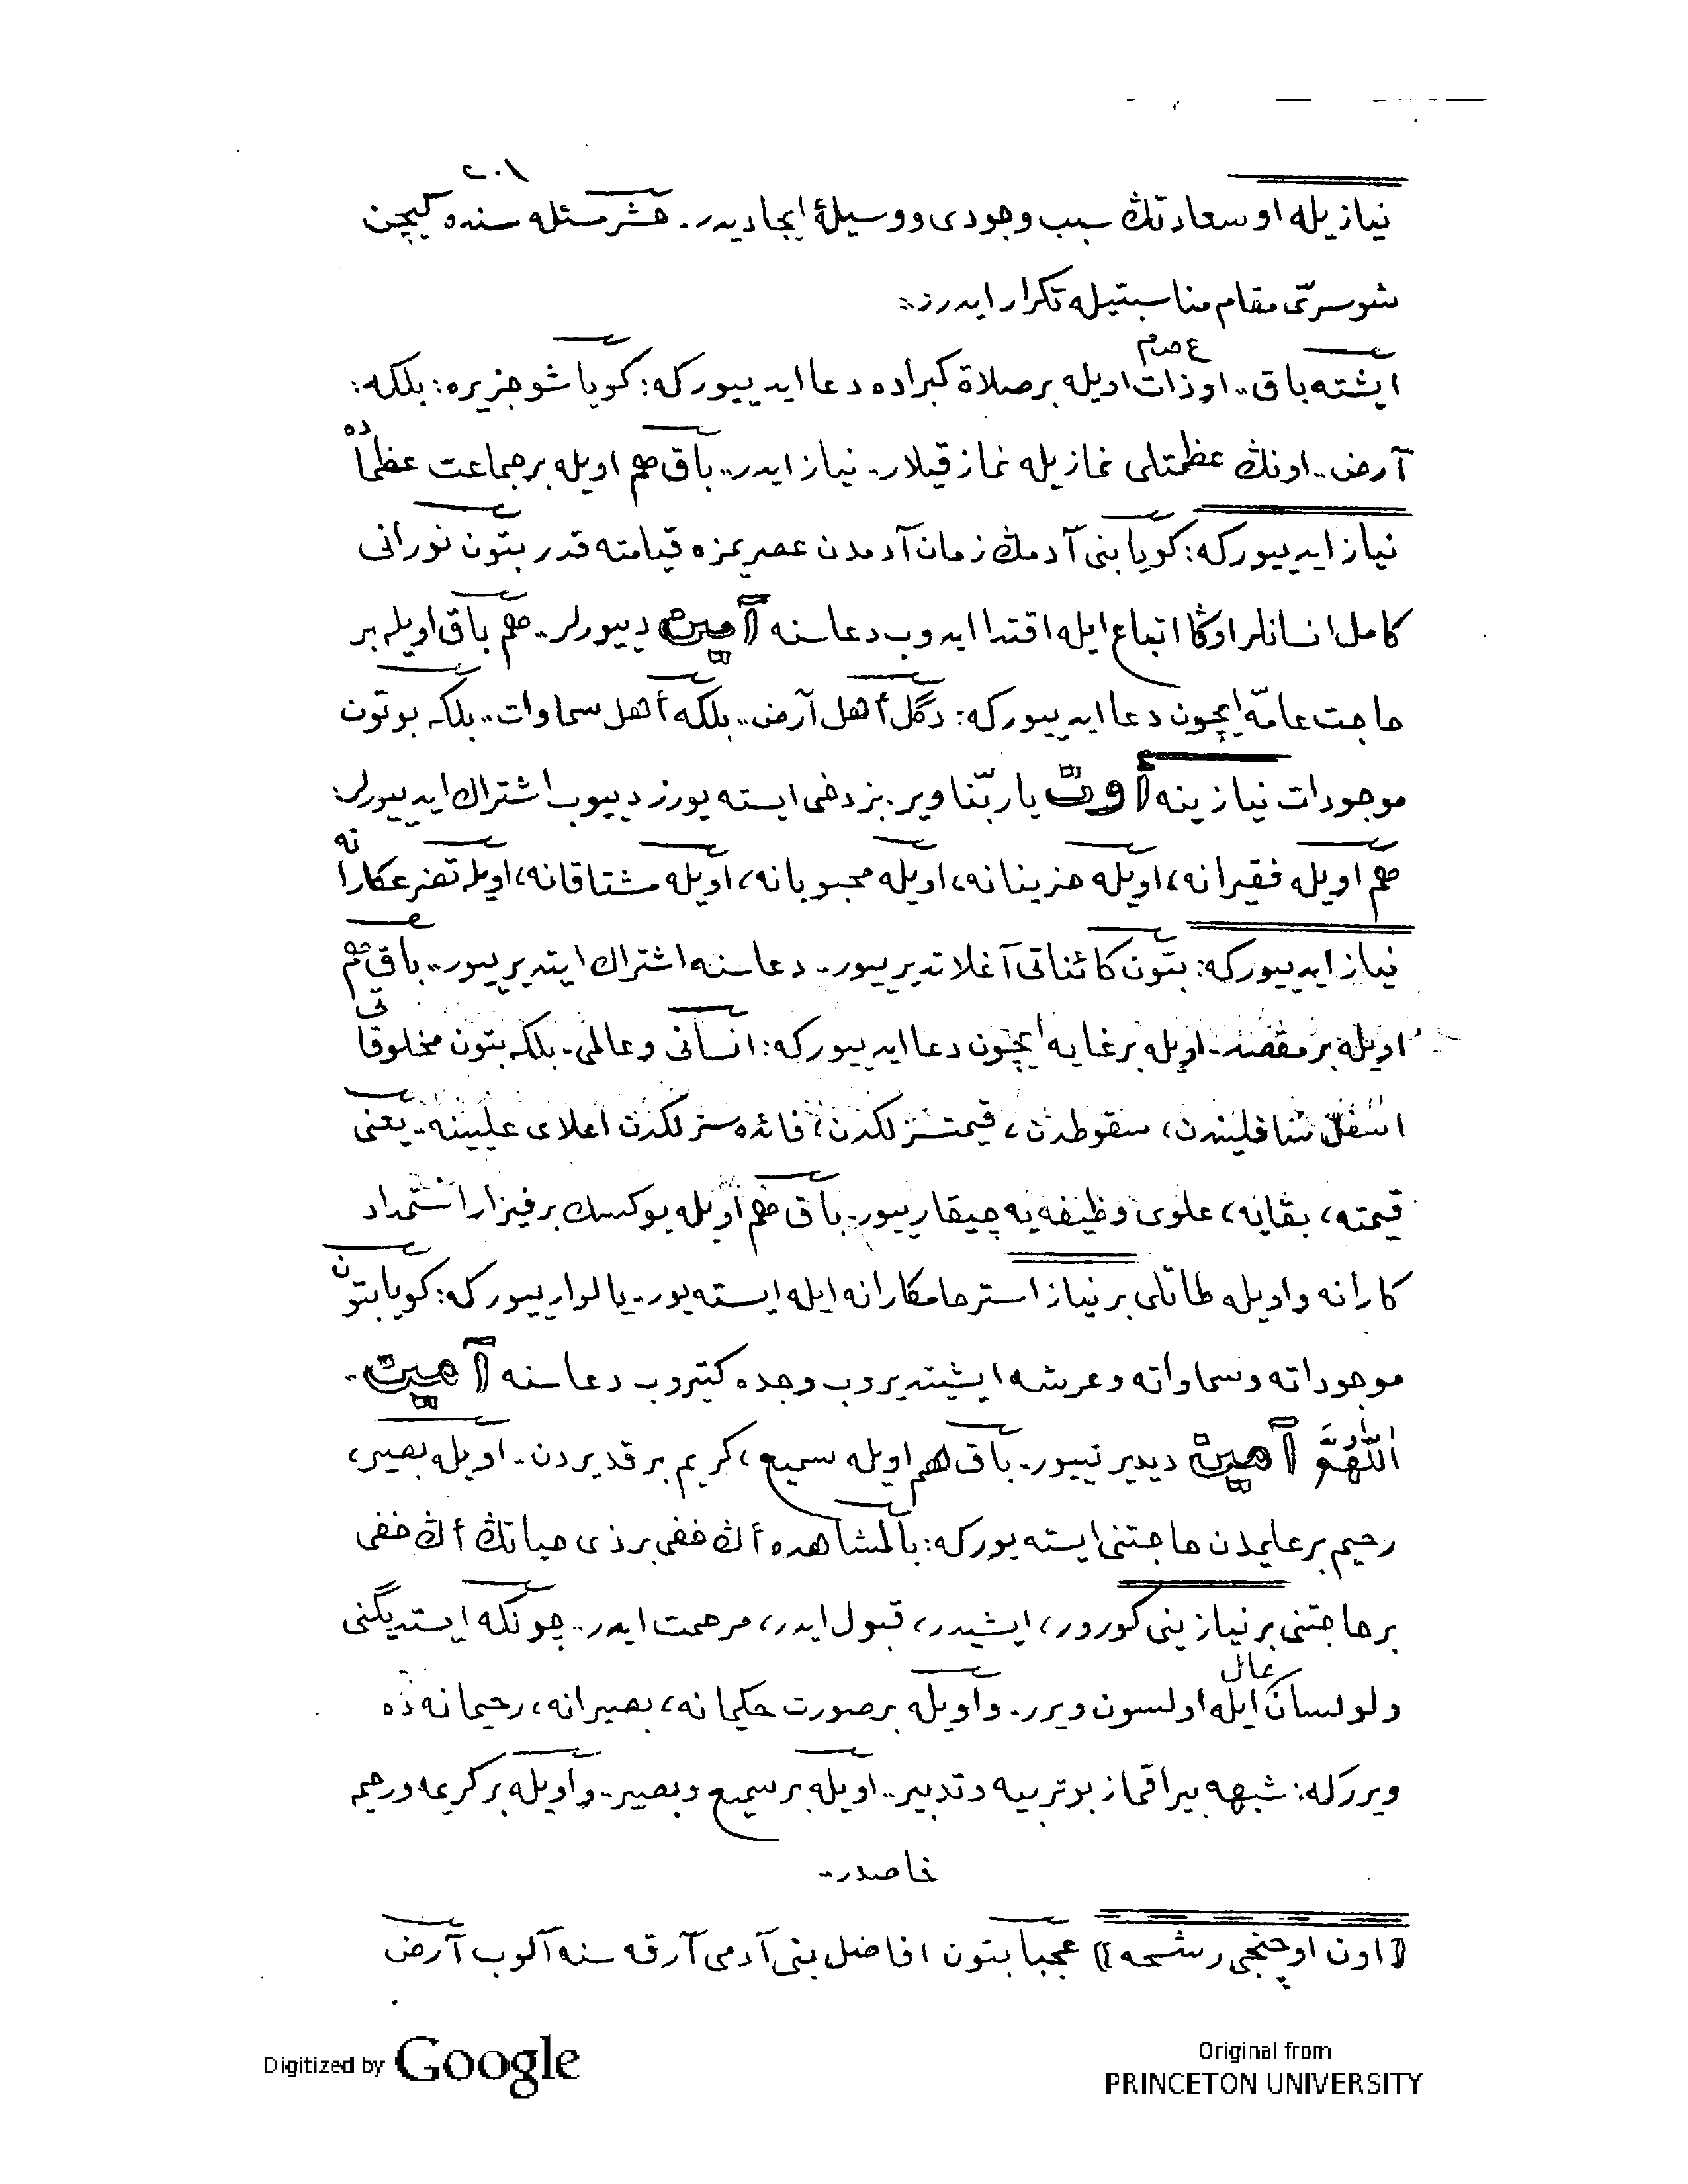 ٢٠١
نیازیله او سعادتڭ سبب وجودی و وسیلهٔ ایجادیدر.. حشر مسئله سنده گیچن
شو سرّی مقام مناسبتیله تکرار ایدرز:
ایشته باق.. او ذات ع ص م اویله بر صلاة کبراده دعا ایدییورکه: گویا شو جزیره: بلکه:
آرض.. اونڭ عظمتلی نمازیله نماز قیلار.. نیاز ایدر.. باق هم اویله بر جماعت عظماده
نیاز ایدییورکه: گویا بنی آدمڭ زمان آدمدن عصریمزه قیامته قدر بتون نورانی
کامل انسانلر اوڭا اتباع ایله اقتدا ایدوب دعاسنه آمین دییورلر.. هم باق اویله بر
حاجت عامّه ایچون دعا ایدییورکه: دگل أهل آرض.. بلکه أهل سماوات.. بلکه بوتون
موجودات نیازینه أوت یا ربّنا ویر. بز دخی ایسته یورز دییوب اشتراك ایدییورلر:
هم اویله فقیرانه، اویله حزینانه، اویله محبوبانه، اویله مشتاقانه، اویله تضرعکارانه
نیاز ایدییورکه: بتون کائناتی آغلاتدیرییور.. دعاسنه اشتراك ایتدیرییور.. باق هم
اویله بر مقصد.. اویله بر غایه ایچون دعا ایدییورکه: انسانی و عالمی.. بلکه بتون مخلوقاتی
اسفل سافلیندن، سقوطدن، قیمتسزلکدن، فائده سزلکدن اعلای علیینه.. یعنی
قیمته، بقایه، علوی وظیفه یه چیقارییور.. باق هم اویله یوکسك بر فیزار استمداد
کارانه و اویله طاتلی بر نیاز استرحامکارانه ایله ایسته یور.. یالوارییورکه: گویا بتون
موجوداته و سماواته و عرشه ایشیتدیروب وجده کتیروب دعاسنه آمین.
اللّٰهمَّ آمین دیدیرتییور.. باق هم اویله سمیع، کریم بر قدیردن.. اویله بصیر،
رحیم بر علیمدن حاجتنی ایسته یورکه: بالمشاهده أڭ خفی بر ذی حیاتڭ أڭ خفی
بر حاجتنی بر نیازینی کورور، ایشیدر، قبول ایدر، مرحمت ایدر.. چونکه ایستدیگنی
ولو لسان حال ایله اولسون ویرر.. و اویله بر صورت حکیمانه، بصیرانه، رحیمانه ده
ویررکه: شبهه بیراقماز بو تربیه و تدبیر.. اویله بر سمیع و بصیر.. و اویله بر کریمه و رحیمه
خاصدر..
﴿اون اوچنجی رشحه﴾ عجبا بتون افاضل بنی آدمی آرقه سنه آلوب آرض
Digitized by Google
Original from
PRINCETON UNIVERSITY